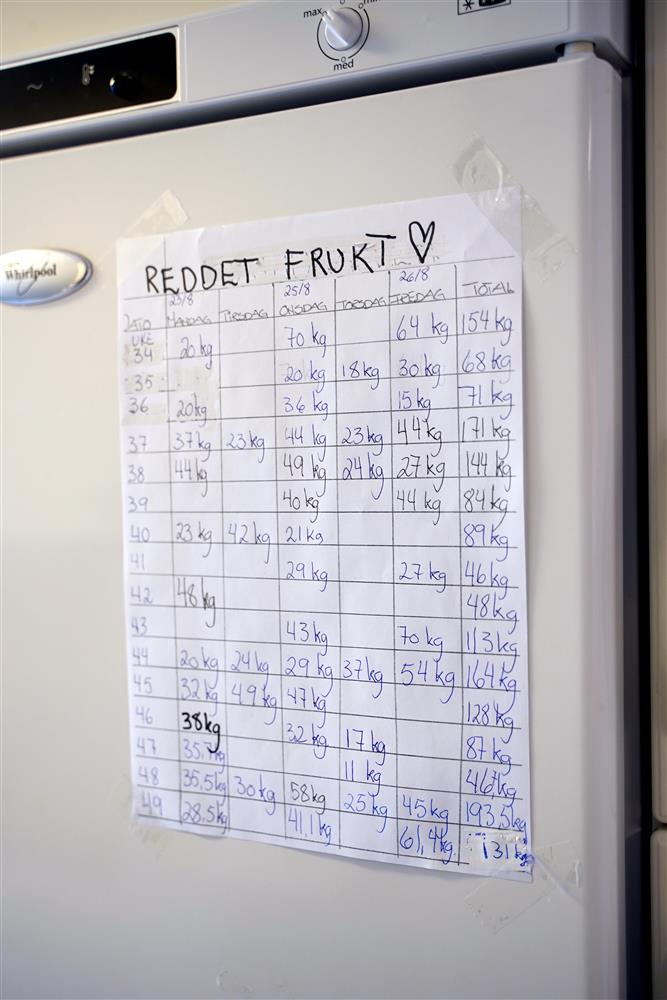 max
med
Whirlpool
REDDET FRUKT ♡
23/8 25/8 26/8
DATO MANDAG TIRSDAG ONSDAG TORSDAG FREDAG TOTAL
UKE
34 20 kg 70 kg 64 kg 154 kg
35 20 kg 18 kg 30 kg 68 kg
36 20 kg 36 kg 15 kg 71 kg
37 37 kg 23 kg 44 kg 23 kg 44 kg 171 kg
38 44 kg 49 kg 24 kg 27 kg 144 kg
39 40 kg 44 kg 84 kg
40 23 kg 42 kg 21 kg 89 kg
41 29 kg 27 kg 46 kg
42 48 kg 48 kg
43 43 kg 70 kg 113 kg
44 20 kg 24 kg 29 kg 37 kg 54 kg 164 kg
45 32 kg 49 kg 47 kg 128 kg
46 38 kg 32 kg 17 kg 87 kg
47 35.7 kg 11 kg 46,7 kg
48 35,5 kg 30 kg 58 kg 25 kg 45 kg 193,5 kg
49 28.5 kg 41,1 kg 61,4 kg. 131 kg